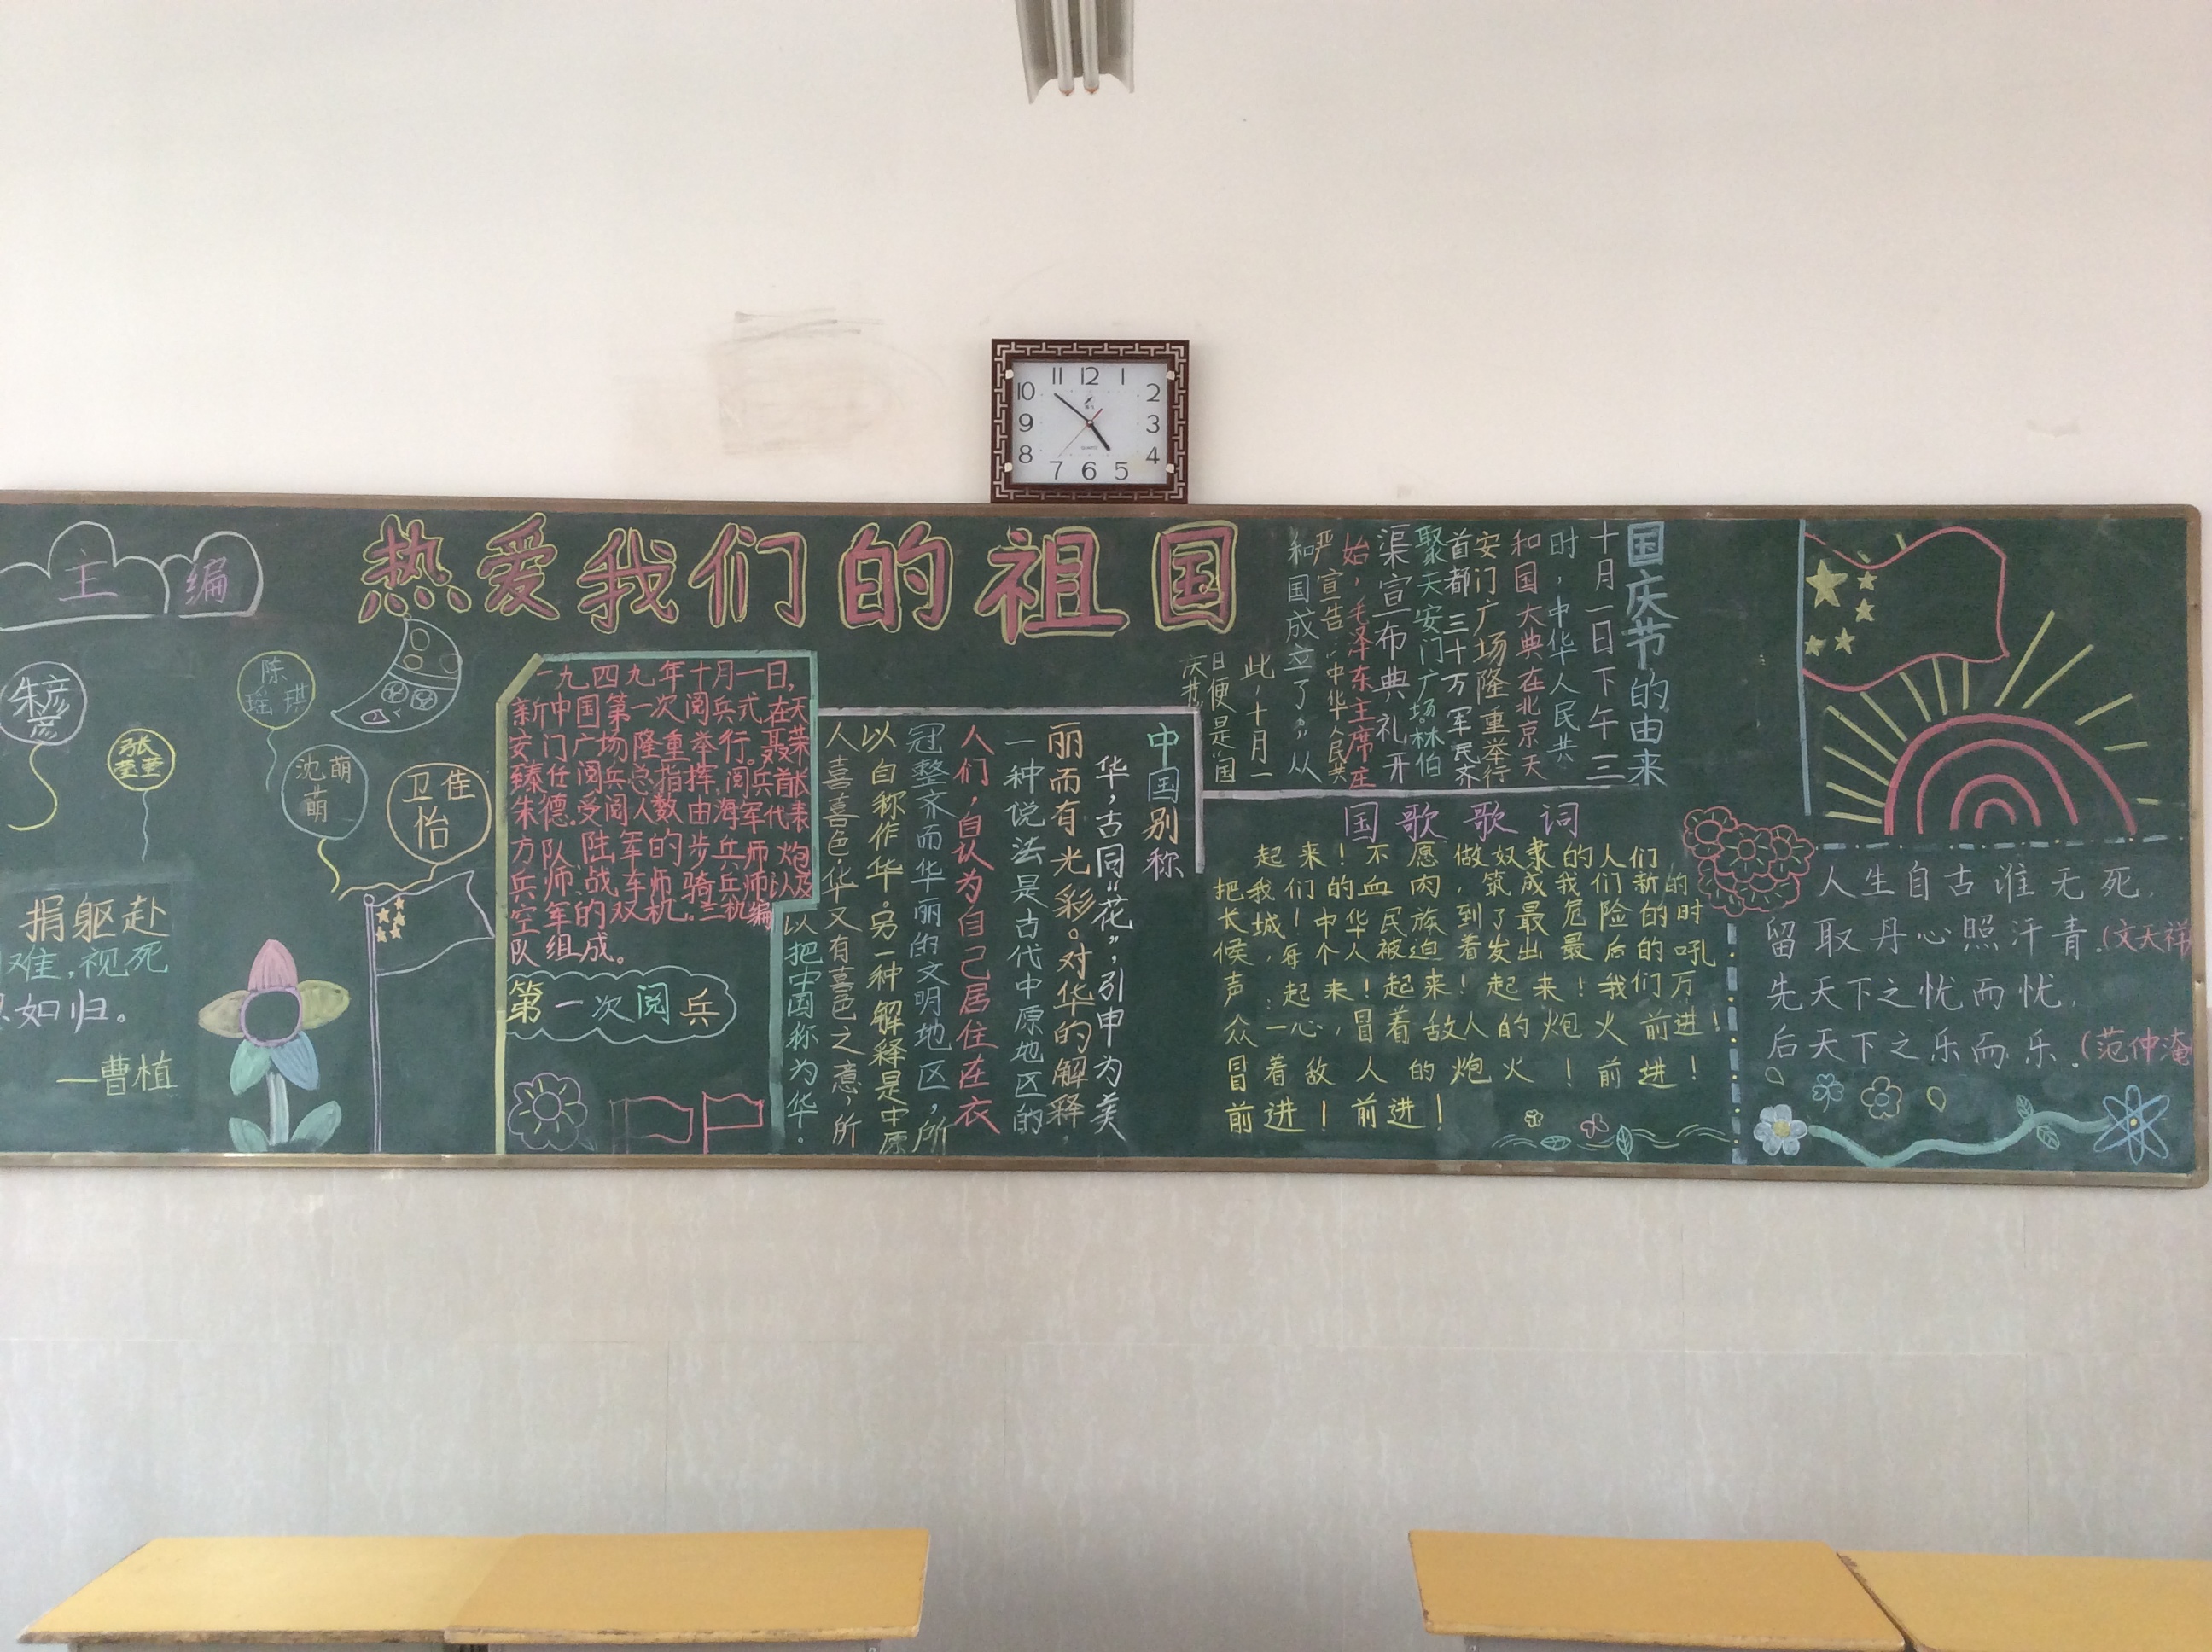 11 12 1
10 2
9 3
8 4
7 6 5
QUARTZ
主编
热爱我们的祖国
朱彦彦
张莹莹
陈瑶琪
沈萌萌
卫佳怡
捐躯赴
难,视死
如归。
—曹植
一九四九年十月一日,
新中国第一次阅兵式在天
安门广场隆重举行。聂荣
臻任阅兵总指挥。阅兵首长
朱德。受阅人数由海军代表
方队、陆军的步兵师、炮
兵师、战车师、骑兵师以及
空军的双机。三机编
队组成。
第一次阅兵
中国别称
华,古同“花”,引申为美
丽而有光彩。对华的解释,
一种说法是古代中原地区的
人们,自认为自己居住在衣
冠整齐而华丽的文明地区,所
以自称作华。另一种解释是中原
人喜喜色,华又有喜色之意,所
以把中国称为华。
国庆节的由来
十月一日下午三
时,中华人民共
和国大典在北京天
安门广场隆重举行
首都三十万军民齐
聚天安门广场。林伯
渠宣布典礼开
始,毛泽东主席庄
严宣告:“中华人民共
和国成立了”从
此,十月一
日便是国
庆节
国歌歌词
起来!不愿做奴隶的人们
把我们的血肉,筑成我们新的
长城!中华民族到了最危险的时
候,每个人被迫着发出最后的吼
声:起来!起来!起来!我们万
众一心,冒着敌人的炮火前进!
冒着敌人的炮火!前进!
前进!前进!
人生自古谁无死,
留取丹心照汗青.(文天祥
先天下之忧而忧,
后天下之乐而乐.(范仲淹